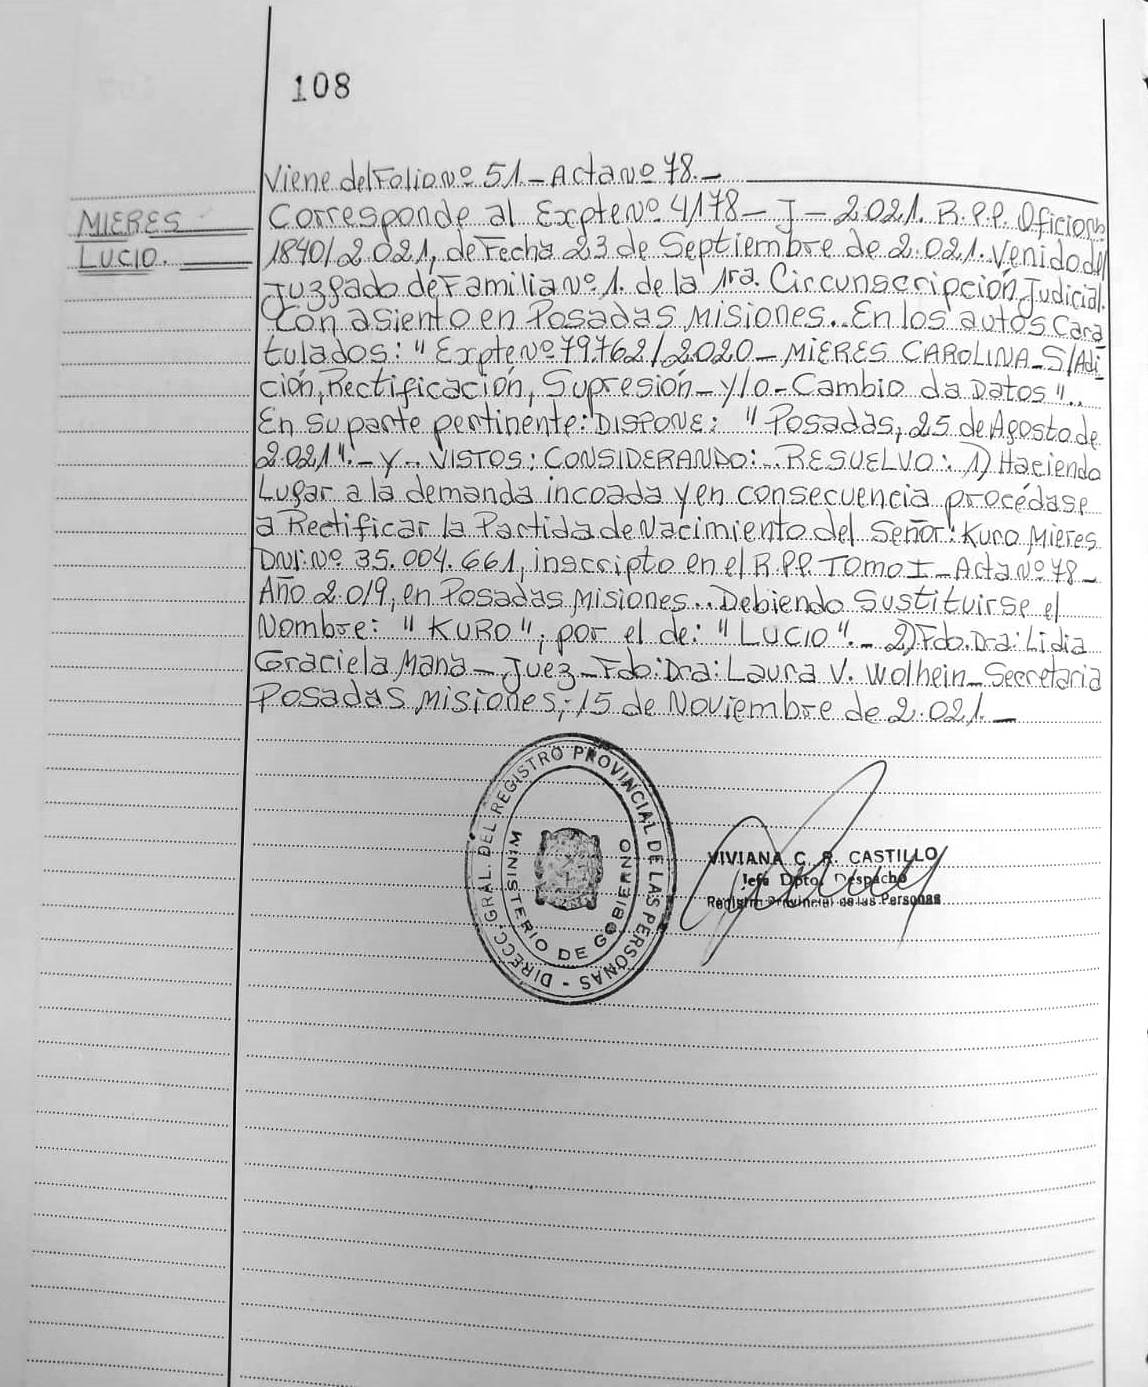 108
Viene del Folio Nº 51.- Acta Nº 78.-
MIERES
LUCIO.
Corresponde al Expte Nº 4178-J-2.021. R.P.P. Oficio Nº
1840/2.021, de Fecha 23 de Septiembre de 2.021. Venido del
Juzgado de Familia Nº 1. de la 1ra. Circunscripción Judicial.
Con asiento en Posadas Misiones.. En los autos Cara
tulados: "Expte Nº 79762/2020-MIERES CAROLINA-S/Adi_
ción, Rectificación, Supresión-y/o-Cambio da Datos"..
En su parte pertinente: DISPONE: "Posadas, 25 de Agosto de
2.021".-Y.. VISTOS: CONSIDERANDO:.. RESUELVO: 1) Haciendo
Lugar a la demanda incoada y en consecuencia procédase
a Rectificar la Partida de Nacimiento del Señor: Kuro Mieres
DNI: Nº 35.004.661, inscripto en el R.P.P. Tomo I-Acta Nº 78-
Año 2.019, en Posadas Misiones.. Debiendo Sustituirse el
Nombre: "KURO", por el de: "LUCIO".- 2) Fdo. Dra: Lidia
Graciela Mana-Juez-Fdo: Dra: Laura V. Wolhein-Secretaria
Posadas Misiones,-15 de Noviembre de 2.021.-
DIRECC. GRAL. DEL REGISTRO PROVINCIAL DE LAS PERSONAS -
MINISTERIO DE GOBIERNO
VIVIANA C. R. CASTILLO
Jefa Dpto. Despacho
Registro Provincial de las Personas